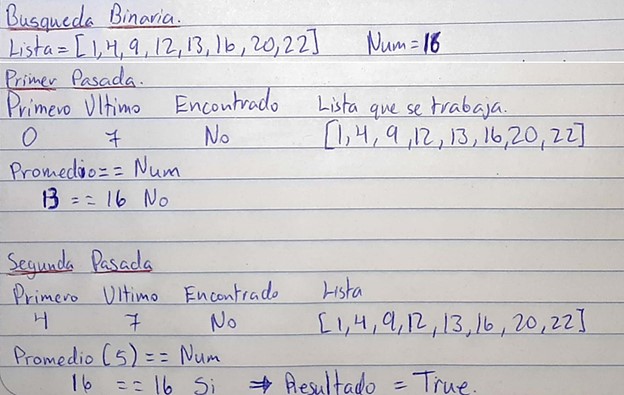 Busqueda Binaria.
Lista = [1,4,9,12,13,16,20,22] Num = 16
Primer Pasada.
Primero Ultimo Encontrado Lista que se trabaja.
0 7 No [1,4,9,12,13,16,20,22]
Promedio == Num
13 == 16 No
Segunda Pasada
Primero Ultimo Encontrado Lista
4 7 No [1,4,9,12,13,16,20,22]
Promedio (5) == Num
16 == 16 Si ⇒ Resultado = True.